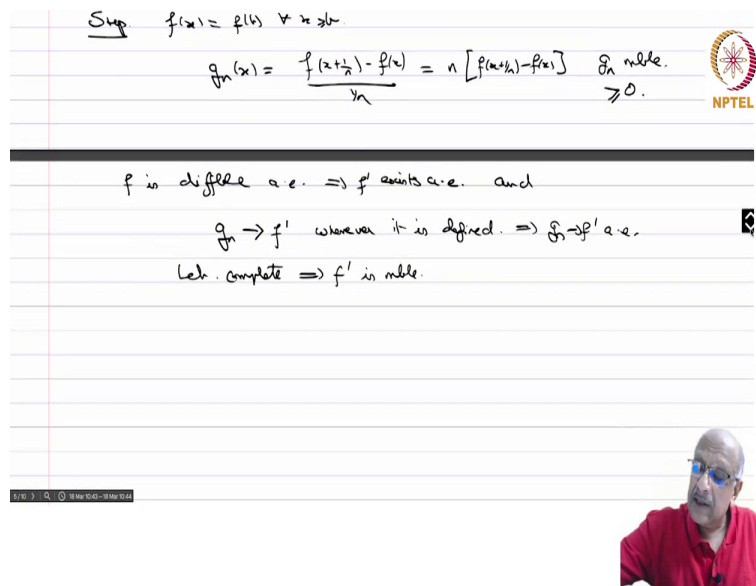 Step. f(x) = f(b) ∀ x ≥ b.
g_n(x) = \frac{f(x+\frac{1}{n}) - f(x)}{1/n} = n [f(x+1/n) - f(x)] g_n mble.
≥ 0.
NPTEL
f is diffble a.e. ⇒ f' exists a.e. and
g_n → f' wherever it is defined. ⇒ g_n → f' a.e.
Leb. complete ⇒ f' is mble.
5/10 18 Mar 10:43 – 18 Mar 10:44